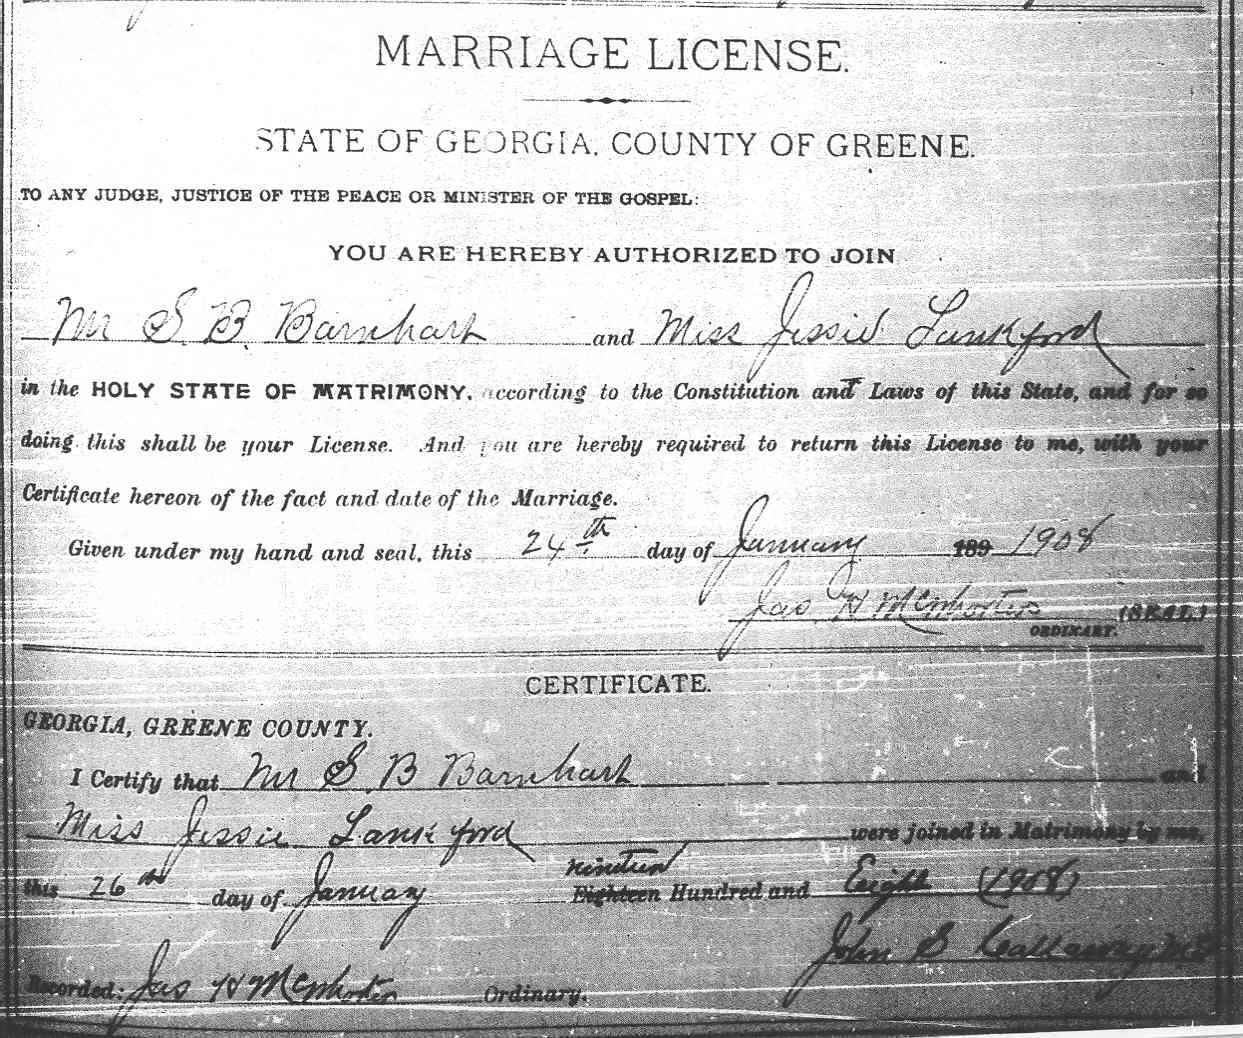 MARRIAGE LICENSE.
STATE OF GEORGIA, COUNTY OF GREENE.
TO ANY JUDGE, JUSTICE OF THE PEACE OR MINISTER OF THE GOSPEL:
YOU ARE HEREBY AUTHORIZED TO JOIN
Mr S. B. Barnhart and Miss Jessie Lankford
in the HOLY STATE OF MATRIMONY, according to the Constitution and Laws of this State, and for so
doing this shall be your License. And you are hereby required to return this License to me, with your
Certificate hereon of the fact and date of the Marriage.
Given under my hand and seal, this 24th day of January 189 1908
Jas H McWhorter (SEAL)
ORDINARY.
CERTIFICATE.
GEORGIA, GREENE COUNTY.
I Certify that Mr S B Barnhart and
Miss Jessie Lankford were joined in Matrimony by me,
nineteen
this 26th day of January Eighteen Hundred and Eight (1908)
John S Callaway
Recorded: Jas H McWhorter Ordinary.